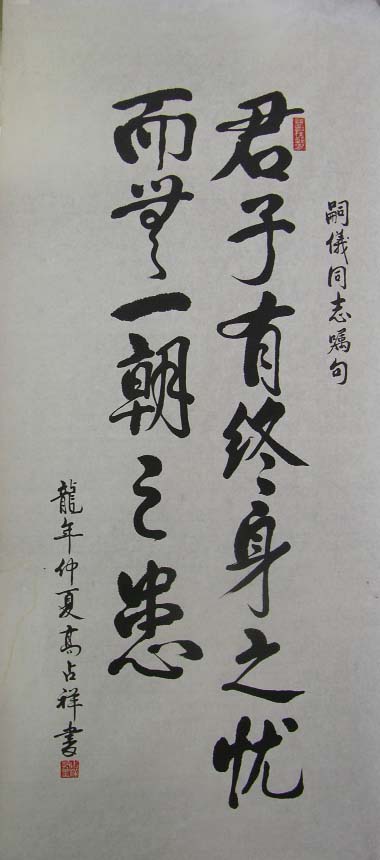 嗣儀同志嘱句
君子有终身之忧
而無一朝之患
龍年仲夏高占祥書